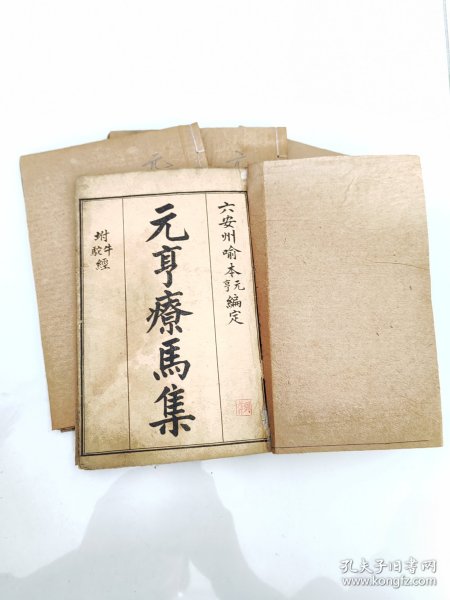 六安州喻本元亨編定
元亨療馬集
附牛駝經
元
元
孔夫子旧书网
www.kongfz.com